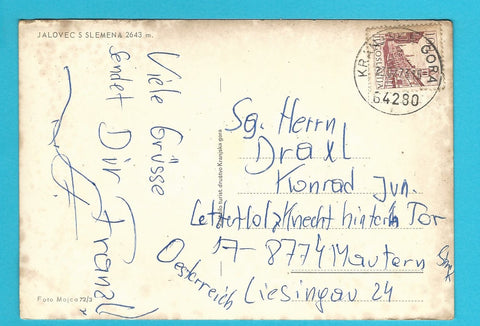 JALOVEC S SLEMENA 2643 m.
Viele Grüsse
sendet Dir Franzl
Foto Mojca 72/3
turist. društvo Kranjska gora
GORA
64280
Sg. Herrn
Draxl
Konrad jun.
Letzter Holzknecht hinterm Tor
A-8774 Mautern
Liesingau 24
Oesterreich